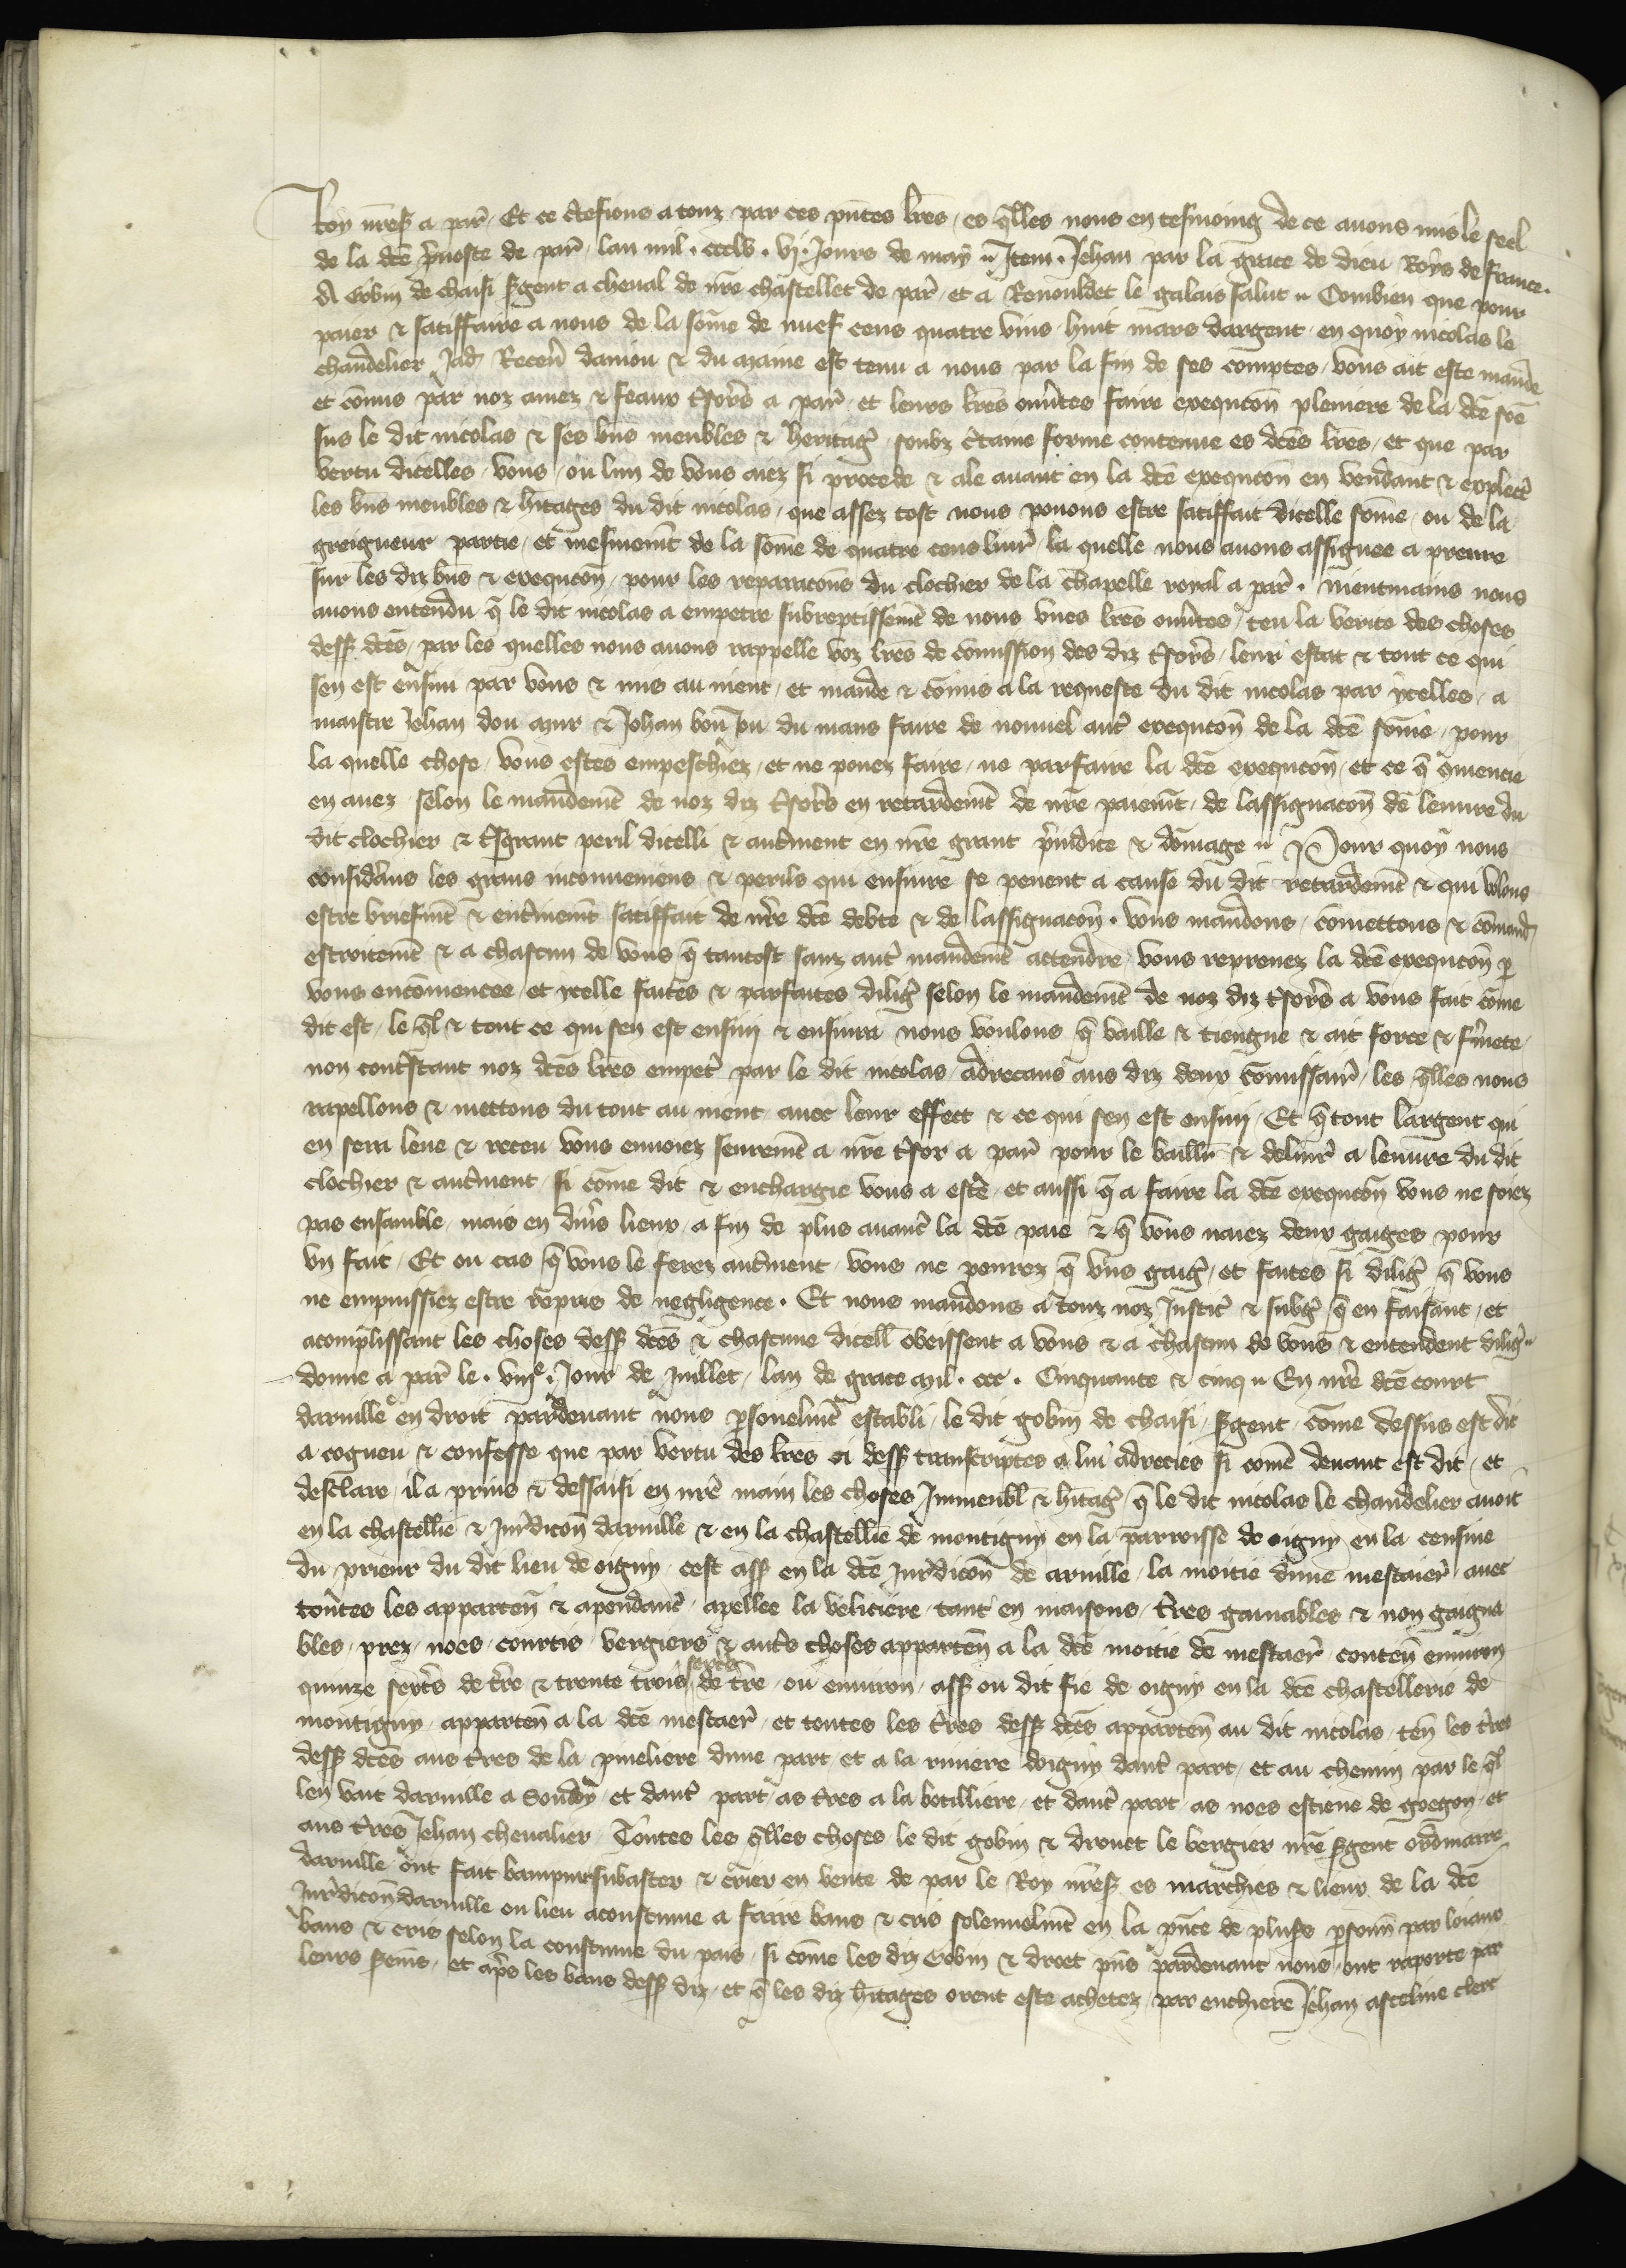 Roy nr̃eß a par̃. Et ce c̃tefions a touz par ces pñtes lr̃es, es q̃lles nous en tesmoing de ce auons mis le seel
de la dc̃e p̃uoste de par̃, lan mil. ccclv. vj. Jours de may. Item. Jehan par la grace de dieu Roys de france.
A Gobin de chaisi s̃gent a cheual de nr̃e chastellet de par̃, et a Renouldet le galais salut. Combien que pour
paier & satiffaire a nous de la som̃e de nuef cens quatre vins huit mars dargent, en quoy nicolas le
chandelier Jad Receu̾ daniou & du maine est tenu a nous par la fin de ses comptes, vous ait este mande
et com̃is par noz amez & feaux tr̃sors a par̃, et leurs lr̃es ouu̾tes faire exequcoñ pleniere de la dc̃e som̃e
sus le dit nicolas & ses biñs meubles & heritag̾, soubz c̃taine forme contenue es dc̃es lr̃es, et que par
vertu dicelles, vous, ou lun de vous aiez si procede & ale auant en la dc̃e exequcoñ en vendant & explect̾
les biñs meubles & h̾itages du dit nicolas, que assez tost nous pouons estre satiffait dicelle som̃e, ou de la
greigneur partie, et mesmemẽt de la som̃e de quatre cens liur̾, la quelle nous auons assignee a prenre
sur les diz biñs & exequcoñ, pour les reparacoñs du clochier de la chapelle royal a par̃. Nientmains nous
auons entendu q̃ le dit nicolas a empetre subreptissemẽt de nous vnes lr̃es ouu̾tes, teu la verite des choses
dess̾ dc̃es, par les quelles nous auons rappelle voz lr̃es de com̃ission des diz tr̃sors, leur estat & tout ce qui
sen est ensuiu par vous & mis au nient, et mande & com̃is a la requeste du dit nicolas par ycelles, a
maistre Jehan dou mur & Jehan bon du mans faire de nouuel aut̾ exequcoñ de la dc̃e som̃e, pour
la quelle chose, vous estes empeschiez, et ne pouez faire, ne parfaire la dc̃e exequcoñ, et ce q̃ q̃mencie
en auez, selon le mandemẽt de noz diz tr̃sors en retardemẽt de nr̃e paiemẽt, de lassignacoñ de leuure du
dit clochier & t̾sgrant peril dicelli & aut̾ment en nr̃e grant p̃iudice & dom̃age. Pour quoy nous
consid̾ans les grans inconueniens & perils qui ensuire se peuent a cause du dit retardemẽt & qui volons
estre briefmẽt & ent̾inemẽt satiffait de nr̃e dc̃e debte & de lassignacoñ. vous mandons, com̃ettons & com̃and
estroitemẽt & a chascun de vous q̃ tantost sanz aut̾ mandemẽt attendre vous reprenez la dc̃e exequcoñ p̱
vous encom̃encee, et ycelle faites & parfaites dilig̾ selon le mandemẽt de noz diz tr̃sors a vous fait com̃e
dit est, le q̃l & tout ce qui sen est ensiuj & ensiura nous voulons q̃ vaille & tiengne & ait force & f̾mete
non contr̃stant noz dc̃es lr̃es empet̾ par le dit nicolas, adrecans aus diz deux com̃issair̾, les q̃lles nous
rapellons & mettons du tout au nient auec leur effect & ce qui sen est ensiuj. Et q̃ tout largent qui
en sera leue & receu vous enuoiez seuremẽt a nr̃e tr̃sor a par̃ pour le baillr̾ & deliur̾ a leuure du dit
clochier & aut̾ment, si com̃e dit & enchargie vous a este, et aussi q̃ a faire la dc̃e exequcoñ vous ne soiez
pas ensamble, mais en diu̾s lieux, a fin de plus auanc̾ la dc̃e paie & q̃ vous naiez deux gaiges pour
vn fait. Et ou cas q̃ vous le ferez aut̾ment, vous ne penrez q̃ vns gaig̾, et faites si dilig̾ q̃ vous
ne empuissiez estre repris de negligence. Et nous mandons a touz noz Justic̾ & subg̾, q̃ en faisant, et
acomplissant les choses dess̾ dc̃es & chascune dicell̾ obeissent a vous & a chascun de vous & entendent dilig̾
donne a par̃ le. viije. Jour de Juillet, lan de grace mil. ccc. Cinquante & cinq. En nr̃e dc̃e court
daruille en droit pardeuant nous p̱sonelmẽt establi, le dit gobin de chaisi, s̃gent, com̃e dessus est dit
a cogneu & confesse que par vertu des lr̃es ci dess̾ transcriptes a lui adrecies si com̃e deuant est dit, et
desclare, il a prins & dessaisi en nr̃e main les choses Jmmeubl̾ & h̾itag̾ q̃ le dit nicolas le chandelier auoit
en la chastellie & Jur̾dicoñ daruille & en la chastellie de montigny en la parroisse de oigny en la censiue
du prieur du dit lieu de oigny, cest ass̾ en la dc̃e Jur̾dicoñ de aruille, la moitie dune mestaier̾, auec
toutes les apparteñ & apendanc̾, apellee la veliciere, tant en maisons, t̾res gainables & non gaigna
bles, prez, noes, courtis, vergiers & aut̾s choses apparteñ a la dc̃e moitie de mestaer̾, conteñ enuiron
quinze sext̾s de t̾re & trente trois sext̾s de t̾re, ou enuiron, ass̾ ou dit fie de oigny en la dc̃e chastellerie de
montigny, apparteñ a la dc̃e mestaer̾, et toutes les t̾res dess̾ dc̃es apparteñ au dit nicolas, teñ les t̾res
dess̾ dc̃es aus t̾res de la pineliere dune part, et a la riuiere doigny daut̾ part, et au chemin par le q̃l
len vait daruille a Souday, et daut̾ part, as t̾res a la botilliere, et daut̾ part, as noes estiene de gregon, et
aus t̾res Jehan cheualier. Toutes les q̃lles choses, le dit gobin & drouet le bergier nr̃e s̃gent ordinaire
daruille, ont fait bampnir subaster & crier en vente de par le Roy nr̃eß es marchies & lieux de la dc̃e
Jur̾dicoñ daruille ou lieu acoustume a faire bans & cris solennelmẽt en la pñce de pluß p̱sonñ par loiaus
bans & cris selon la coustume du pais, si com̃e les diz Gobin & droet pñs pardeuant nous, ont raporte par
leurs sermẽs, et ap̾s les bans dess̾ diz, et q̃ les diz h̾itages orent este achetez, par enchiere Jehan asceline clerc